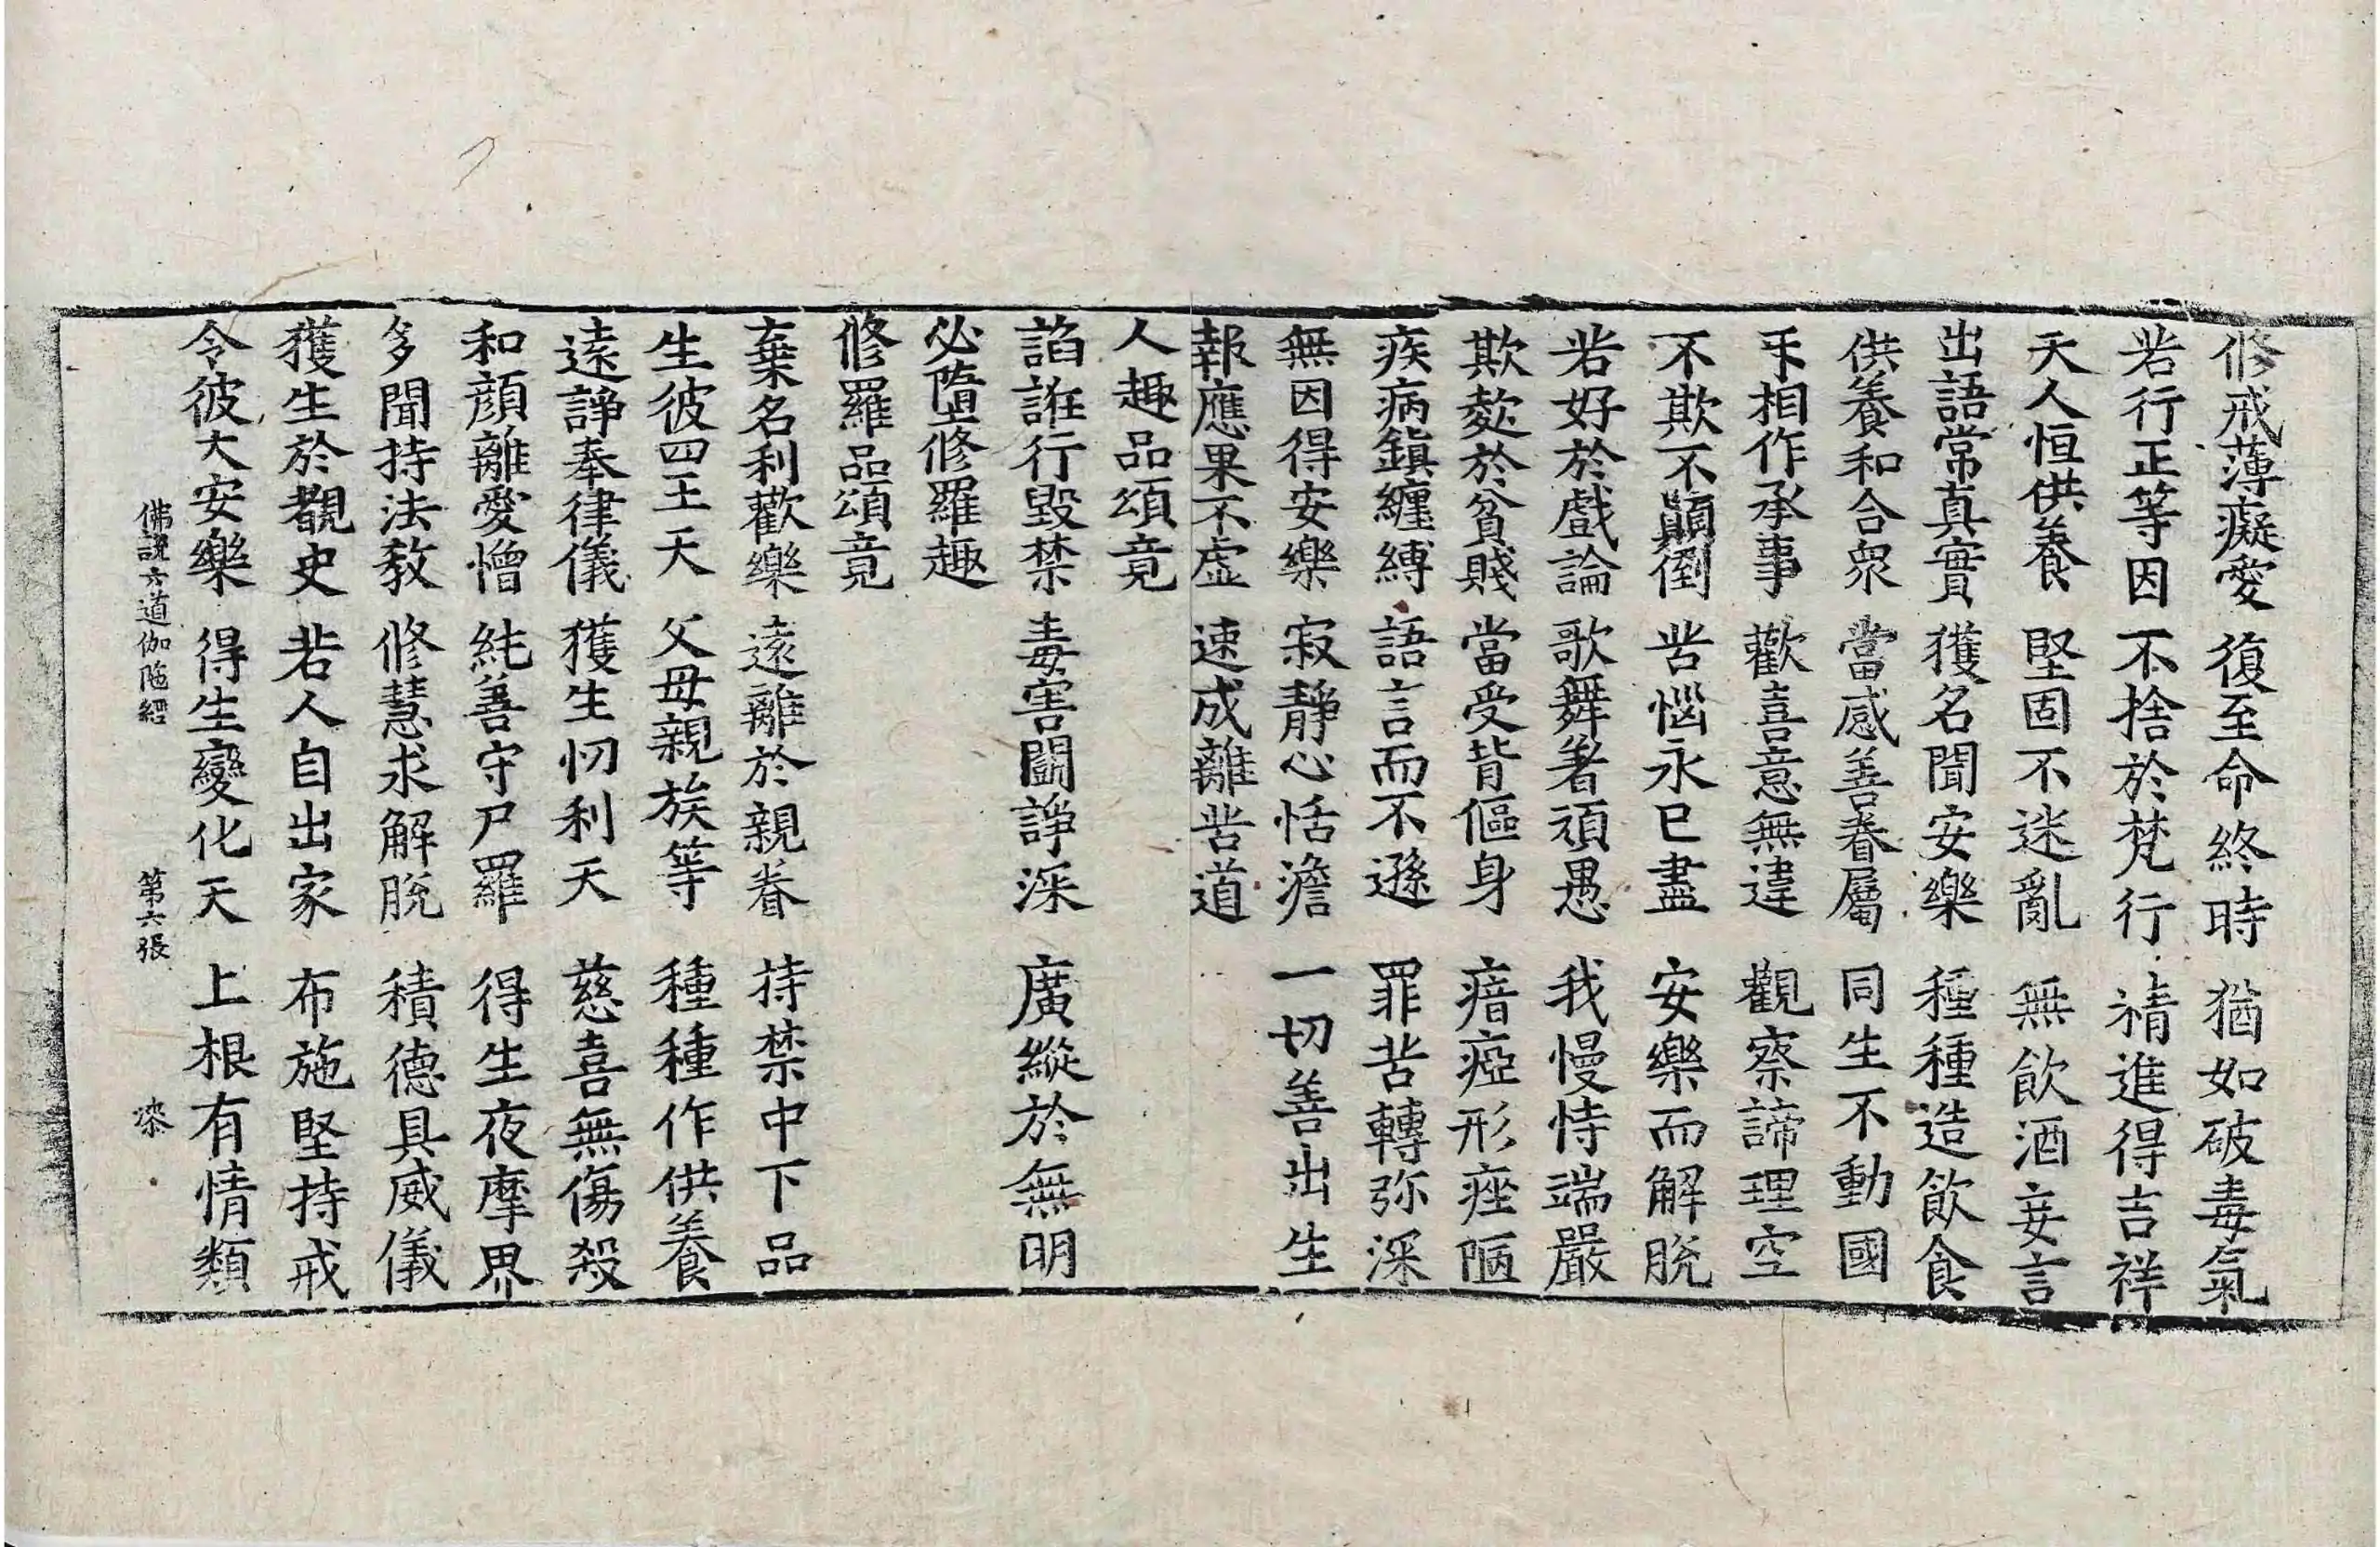 修戒薄癡愛 復至命終時 猶如破毒氣
若行正等因 不捨於梵行 精進得吉祥
天人恒供養 堅固不迷亂 無飲酒妄言
出語常真實 獲名聞安樂 種種造飲食
供養和合衆 當感善眷屬 同生不動國
互相作承事 歡喜意無違 觀察諦理空
不欺不顛倒 苦惱永已盡 安樂而解脫
若好於戲論 歌舞著頑愚 我慢恃端嚴
欺慠於貧賤 當受背傴身 瘖瘂形痤陋
疾病鎮纏縛 語言而不遜 罪苦轉弥深
無因得安樂 寂靜心恬澹 一切善出生
報應果不虛 速成離苦道
人趣品頌竟
諂誑行毀禁 毒害鬪諍深 廣縱於無明
必墮修羅趣
修羅品頌竟
棄名利歡樂 遠離於親眷 持禁中下品
生彼四王天 父母親族等 種種作供養
遠諍奉律儀 獲生忉利天 慈喜無傷殺
和顏離愛憎 純善守尸羅 得生夜摩界
多聞持法教 修慧求解脫 積德具威儀
獲生於覩史 若人自出家 布施堅持戒
令彼大安樂 得生變化天 上根有情類
佛說六道伽陁經 第六張